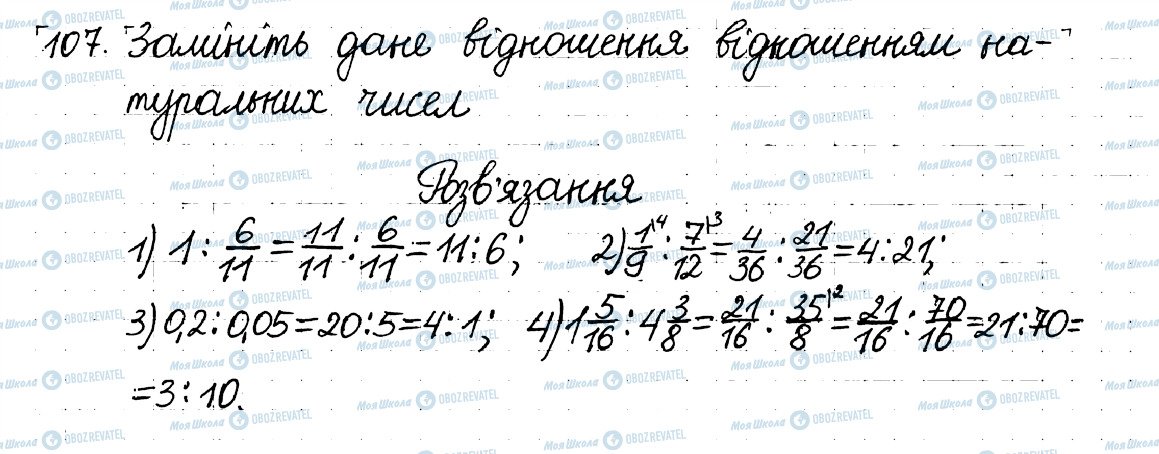 107. Замініть дане відношення відношенням на-
туральних чисел
Розв'язання
1) 1 : 6/11 = 11/11 : 6/11 = 11 : 6; 2) 1/9 |4 : 7/12 |3 = 4/36 : 21/36 = 4 : 21;
3) 0,2 : 0,05 = 20 : 5 = 4 : 1; 4) 1 5/16 : 4 3/8 = 21/16 : 35/8 |2 = 21/16 : 70/16 = 21 : 70 =
= 3 : 10.
Моя Школа OBOZREVATEL